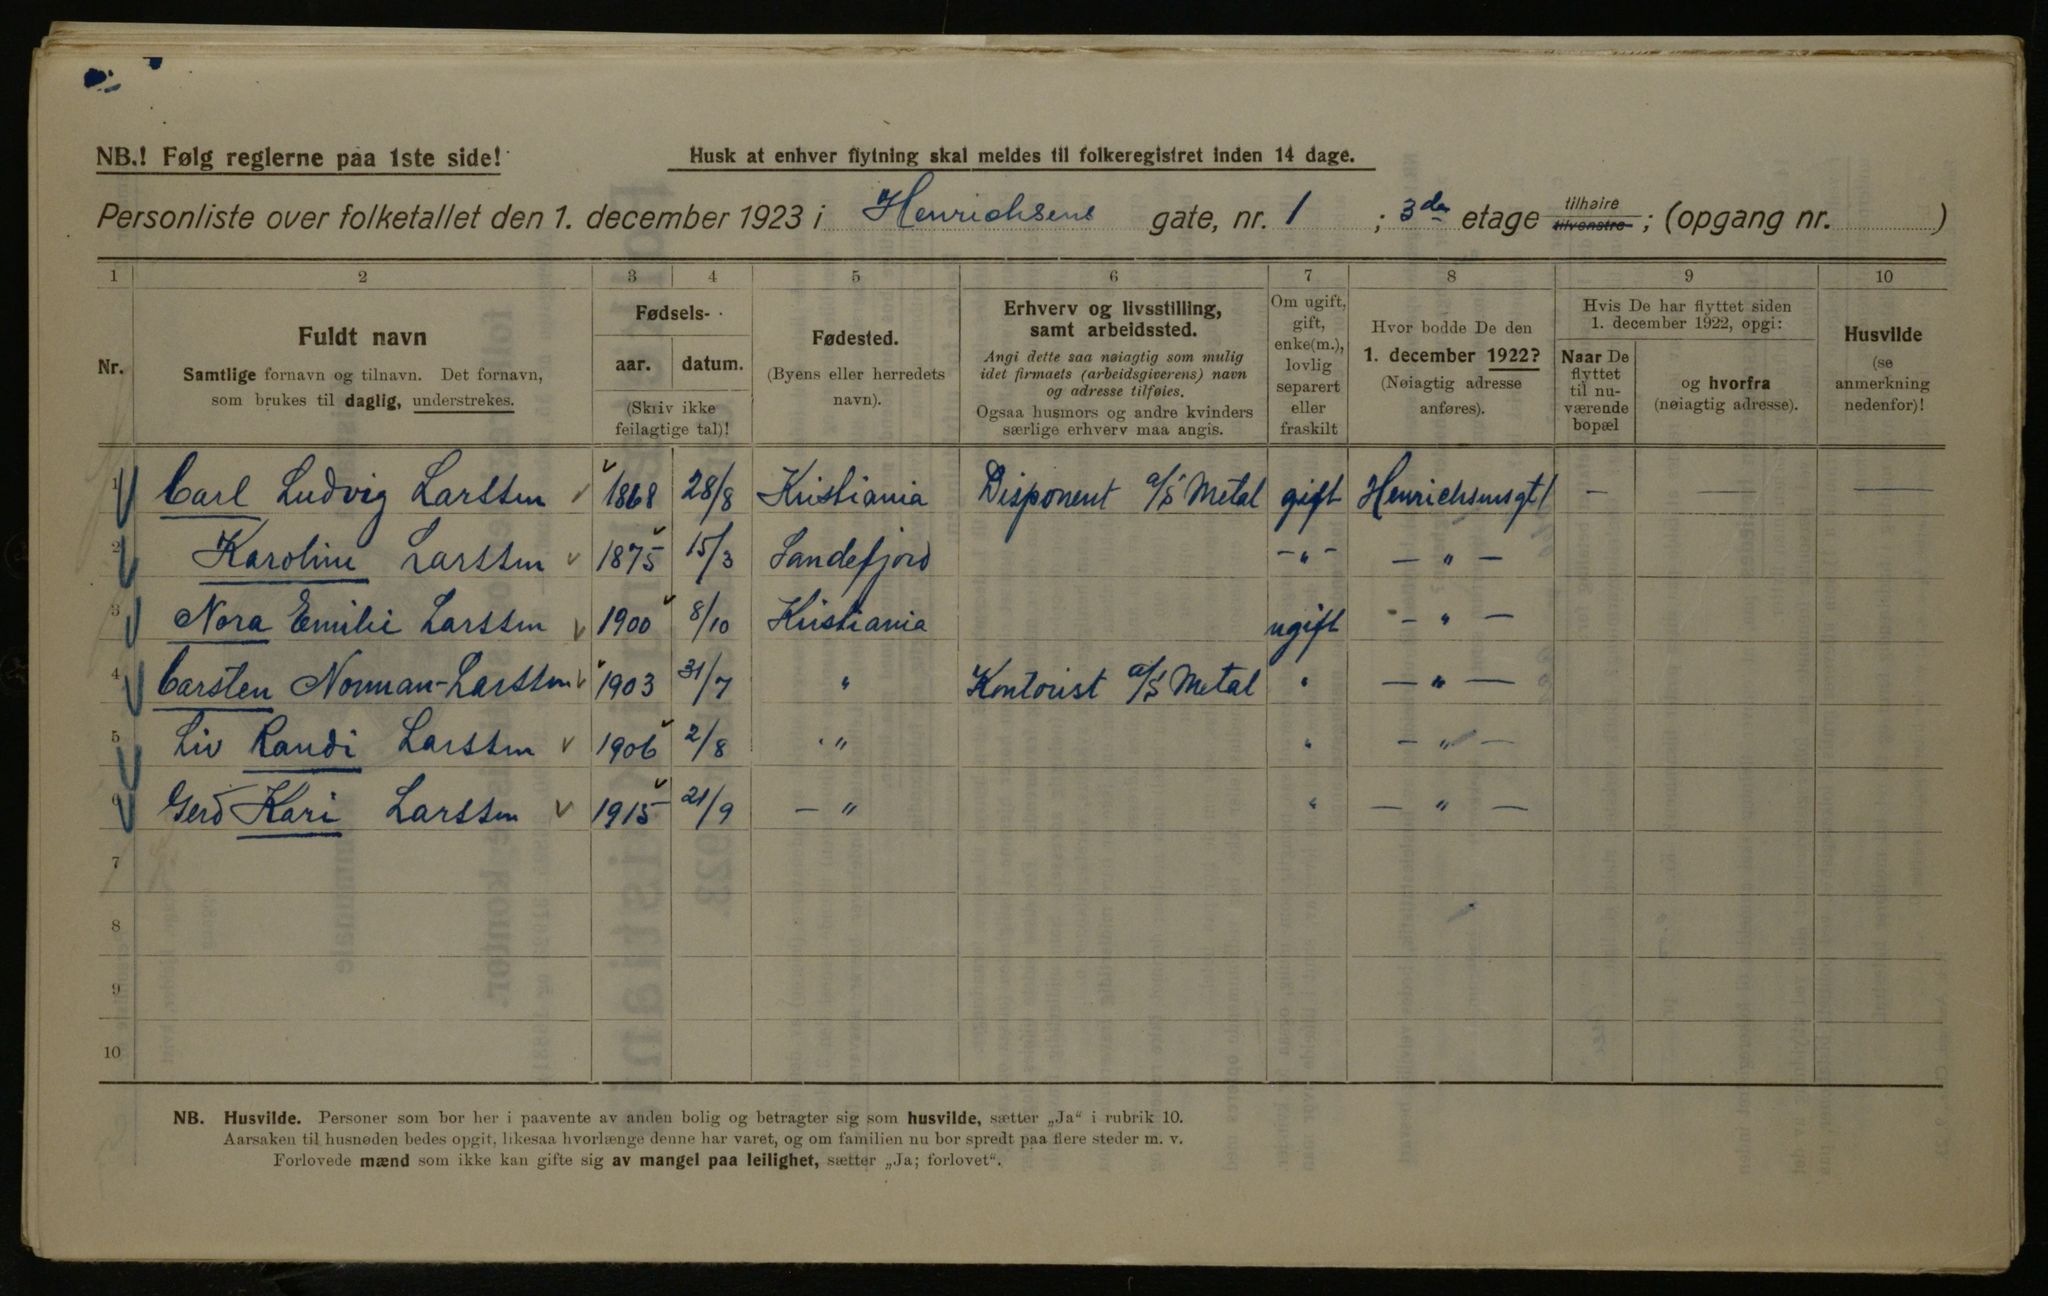 NB.! Følg reglerne paa 1ste side!
Husk at enhver flytning skal meldes til folkeregistret inden 14 dage.
Personliste over folketallet den 1. december 1923 i Henrichsens gate, nr. 1 ; 3de etage tilhøire tilvenstre ; (opgang nr. )
1 2 3 4 5 6 7 8 9 10
Nr.
Fuldt navn
Samtlige fornavn og tilnavn. Det fornavn,
som brukes til daglig, understrekes.
Fødsels-
aar. datum.
(Skriv ikke
feilagtige tal)!
Fødested.
(Byens eller herredets
navn).
Erhverv og livsstilling,
samt arbeidssted.
Angi dette saa nøiagtig som mulig
idet firmaets (arbeidsgiverens) navn
og adresse tilføies.
Ogsaa husmors og andre kvinders
særlige erhverv maa angis.
Om ugift,
gift,
enke(m.),
lovlig
separert
eller
fraskilt
Hvor bodde De den
1. december 1922?
(Nøiagtig adresse
anføres).
Hvis De har flyttet siden
1. december 1922, opgi:
Naar De
flyttet
til nu-
værende
bopæl
og hvorfra
(nøiagtig adresse).
Husvilde
(se
anmerkning
nedenfor)!
1 Carl Ludvig Larssen 1868 28/8 Kristiania Disponent a/s Metal gift Henrichsensgt 1 — — —
2 Karoline Larssen 1875 15/3 Sandefjord - " - — " —
3 Nora Emilie Larssen 1900 8/10 Kristiania ugift — " —
4 Carsten Norman-Larssen 1903 31/7 " Kontorist a/s Metal " — " —
5 Liv Randi Larssen 1906 2/8 " " — " —
6 Gerd Kari Larssen 1915 21/9 — " " — " —
7
8
9
10
NB. Husvilde. Personer som bor her i paavente av anden bolig og betragter sig som husvilde, sætter „Ja“ i rubrik 10.
Aarsaken til husnøden bedes opgit, likesaa hvorlænge denne har varet, og om familien nu bor spredt paa flere steder m. v.
Forlovede mænd som ikke kan gifte sig av mangel paa leilighet, sætter „Ja; forlovet“.